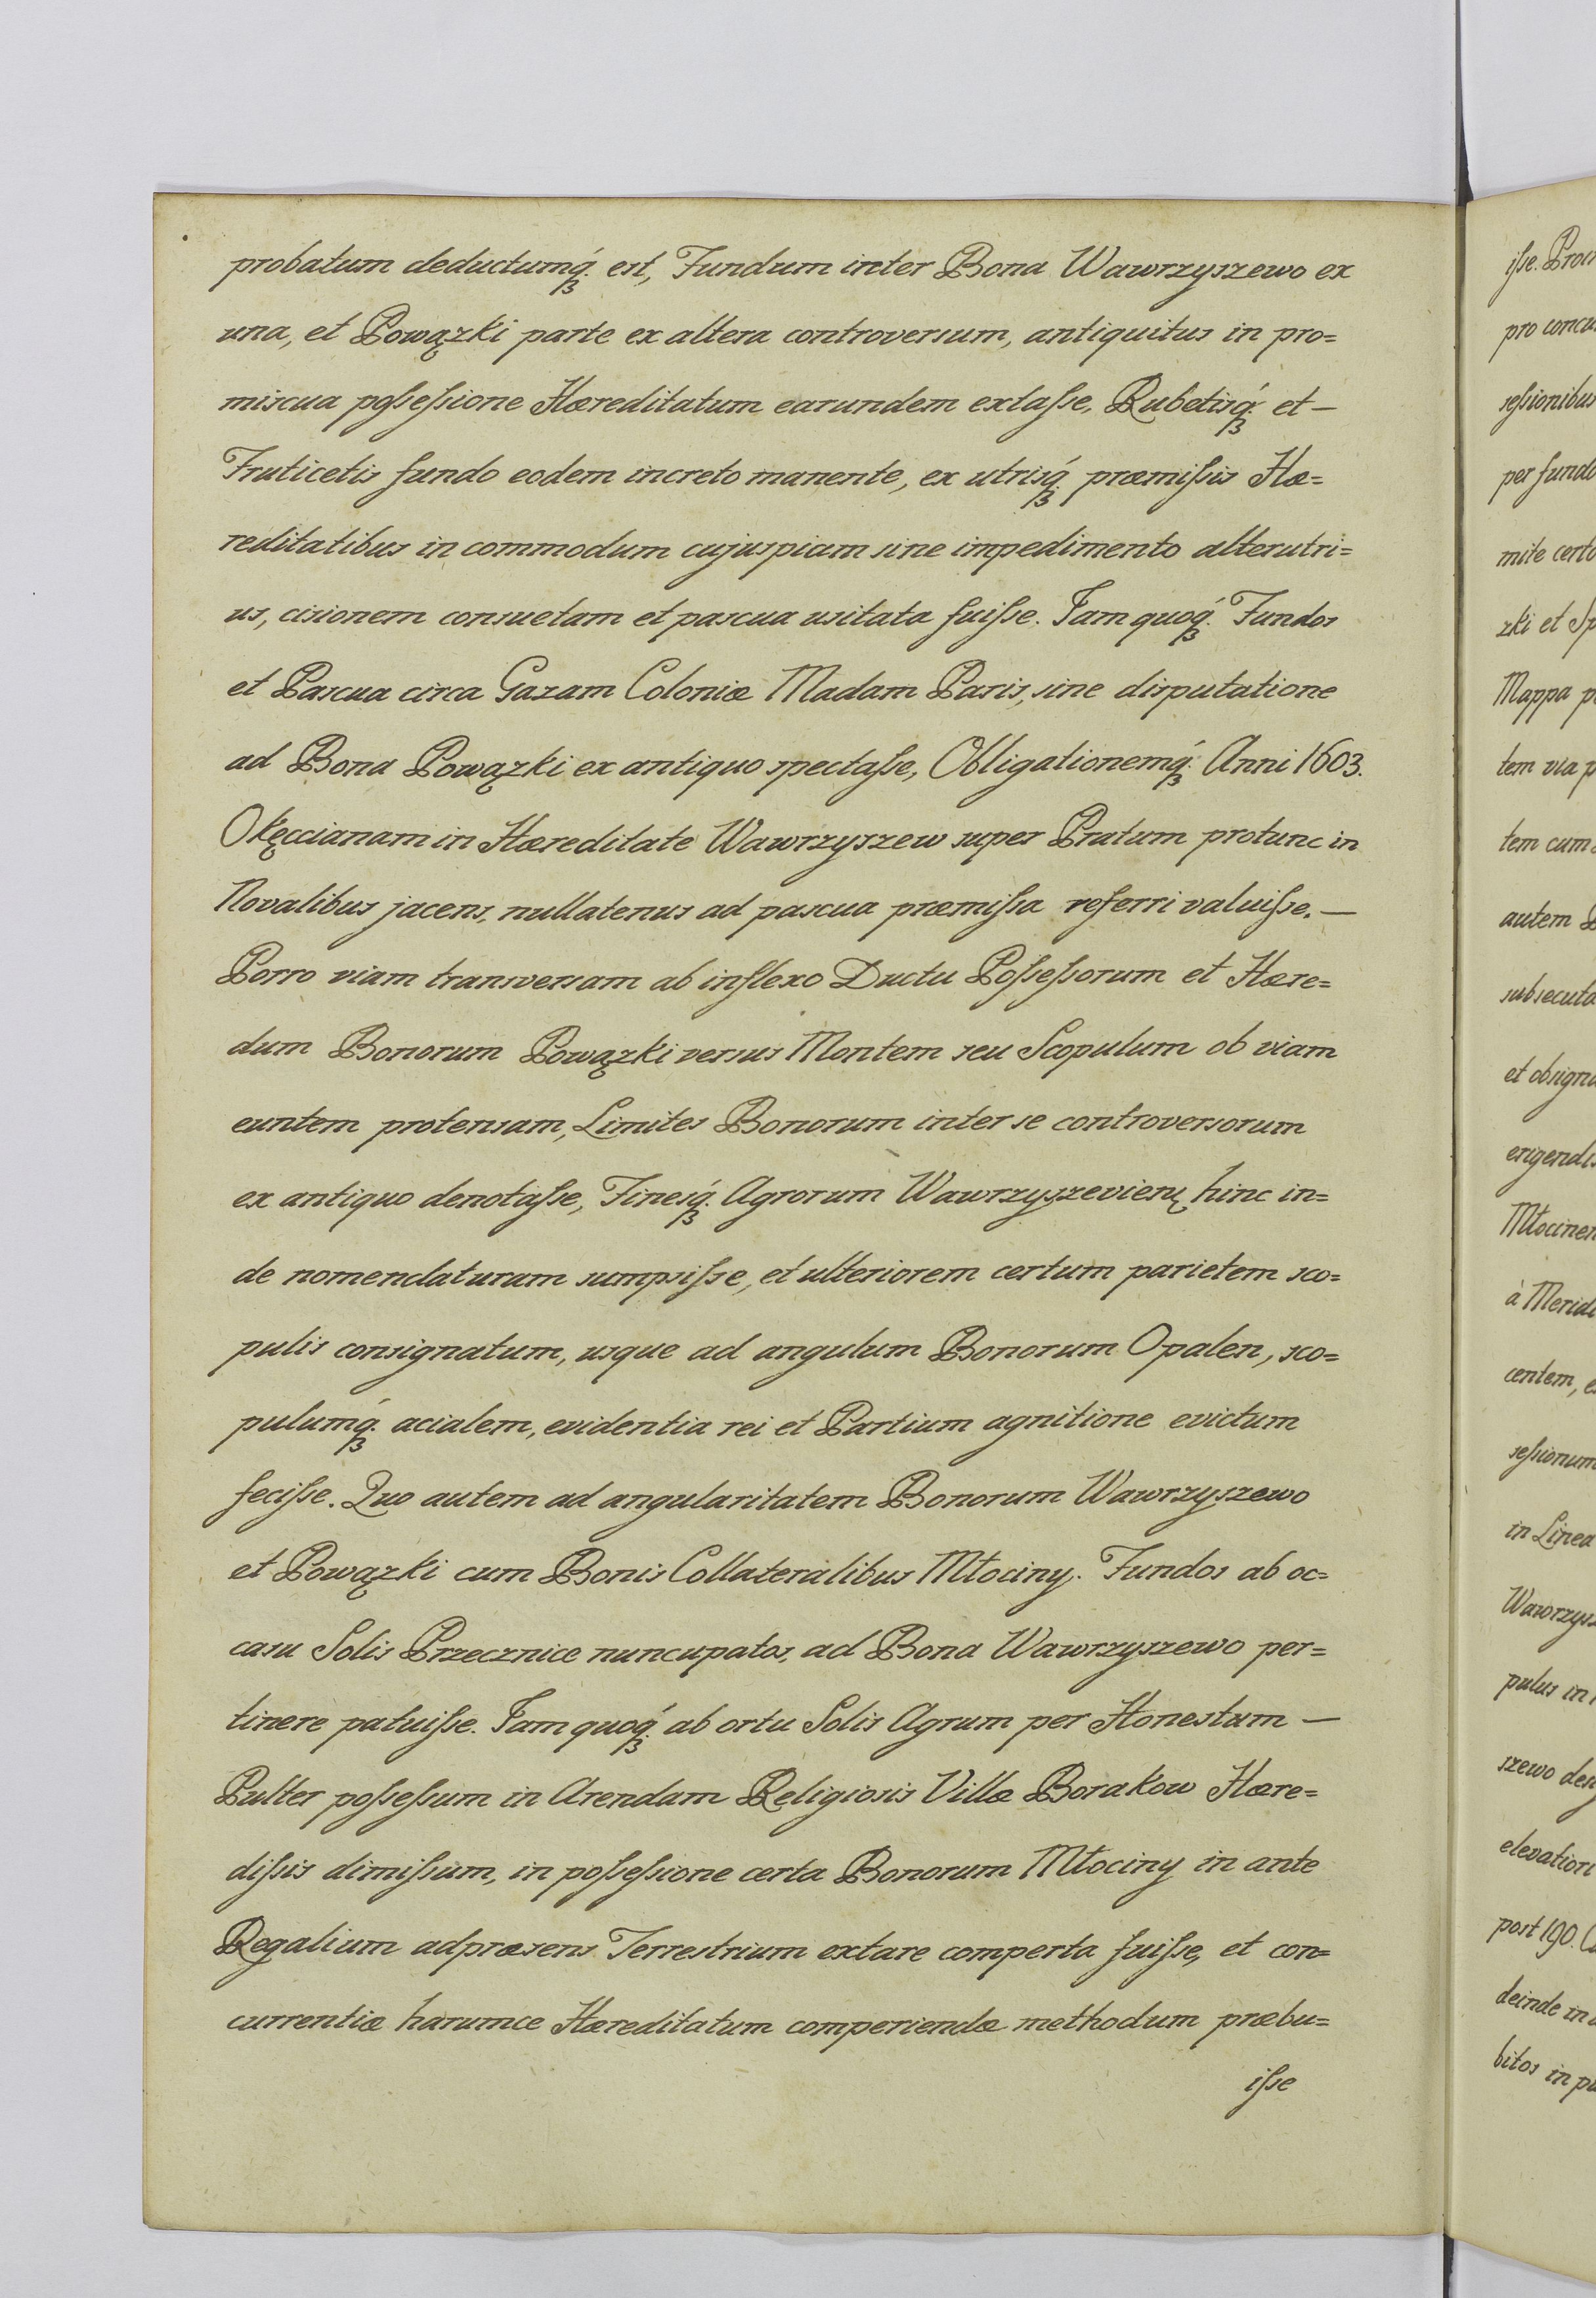 probatum deductumq́ꝫ. est, Fundum inter Bona Wawrzyszewo ex
una, et Powązki parte ex altera controversum, antiquitus in pro=
miscua poſseſsione Hæreditatum earundem extaſse, Rubetisq́ꝫ. et —
Fruticetis fundo eodem increto manente, ex utrisq́ꝫ. præmiſsis Hæ=
reditatibus in commodum cujuspiam sine impedimento alterutri=
us, cisionem consuetam et pascua usitata fuiſse. Tam quoq́ꝫ. Fundos
et Pascua circa Gazam Coloniæ Madam Paris, sine disputatione
ad Bona Powązki ex antiquo spectaſse, Obligationemq́ꝫ. Anni 1603.
Okęccianam in Hæreditate Wawrzyszew super Pratum protunc in
Novalibus jacens, nullatenus ad pascua præmiſsa referri valuiſse. —
Porro viam transversam ab inflexo Ductu Poſseſsorum et Hære=
dum Bonorum Powązki versus Montem seu Scopulum ob viam
euntem protensam, Limites Bonorum inter se controversorum
ex antiquo denotaſse, Finesq́ꝫ. Agrorum Wawrzyszevienȩ hinc in=
de nomenclaturam sumpsiſse, et ulteriorem certum parietem sco=
pulis consignatum, usque ad angulum Bonorum Opalen, sco=
pulumq́ꝫ. acialem, evidentia rei et Partium agnitione evictum
feciſse. Quo autem ad angularitatem Bonorum Wawrzyszewo
et Powązki cum Bonis Collateralibus Młociny. Fundos ab oc=
casu Solis Przecznice nuncupatos, ad Bona Wawrzyszewo per=
tinere patuiſse. Tam quoq́ꝫ. ab ortu Solis Agrum per Honestum —
Pulter poſseſsum in Arendam Religiosis Villæ Borakow Hære=
diſsis dimiſsum, in poſseſsione certa Bonorum Młociny in ante
Regalium adpræsens Terrestrium extare comperta fuiſse, et con=
currentiæ harumce Hæreditatum comperiendæ methodum præbu=
iſse
iſse.
pro
seſsionibus
per
mite
zki et
Mappa
tem via
tem cum
autem
à
centem,
in Linea
pulus in
post 190.
deinde in
bitos in